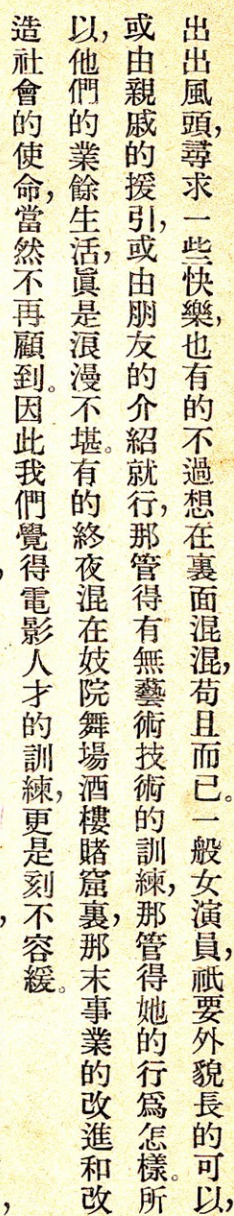 出出風頭，尋求一些快樂，也有的不過想在裏面混混，苟且而已。一般女演員，祇要外貌長的可以，
或由親戚的援引，或由朋友的介紹就行，那管得有無藝術技術的訓練，那管得她的行爲怎樣。所
以，他們的業餘生活，眞是浪漫不堪。有的終夜混在妓院舞場酒樓賭窟裏，那末事業的改進和改
造社會的使命，當然不再顧到。因此我們覺得電影人才的訓練，更是刻不容緩。